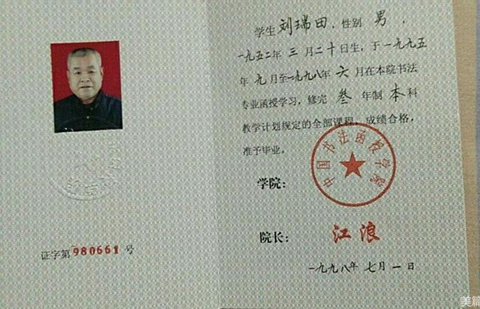 证字第980661号
学生刘瑞田，性别男，
一九五二年三月二十日生，于一九九五
年九月至一九九八年六月在本院书法
专业函授学习，修完叁年制本科
教学计划规定的全部课程，成绩合格，
准予毕业。
学院：
中国书法函授学院
院长：江浪
一九九八年七月一日
美篇